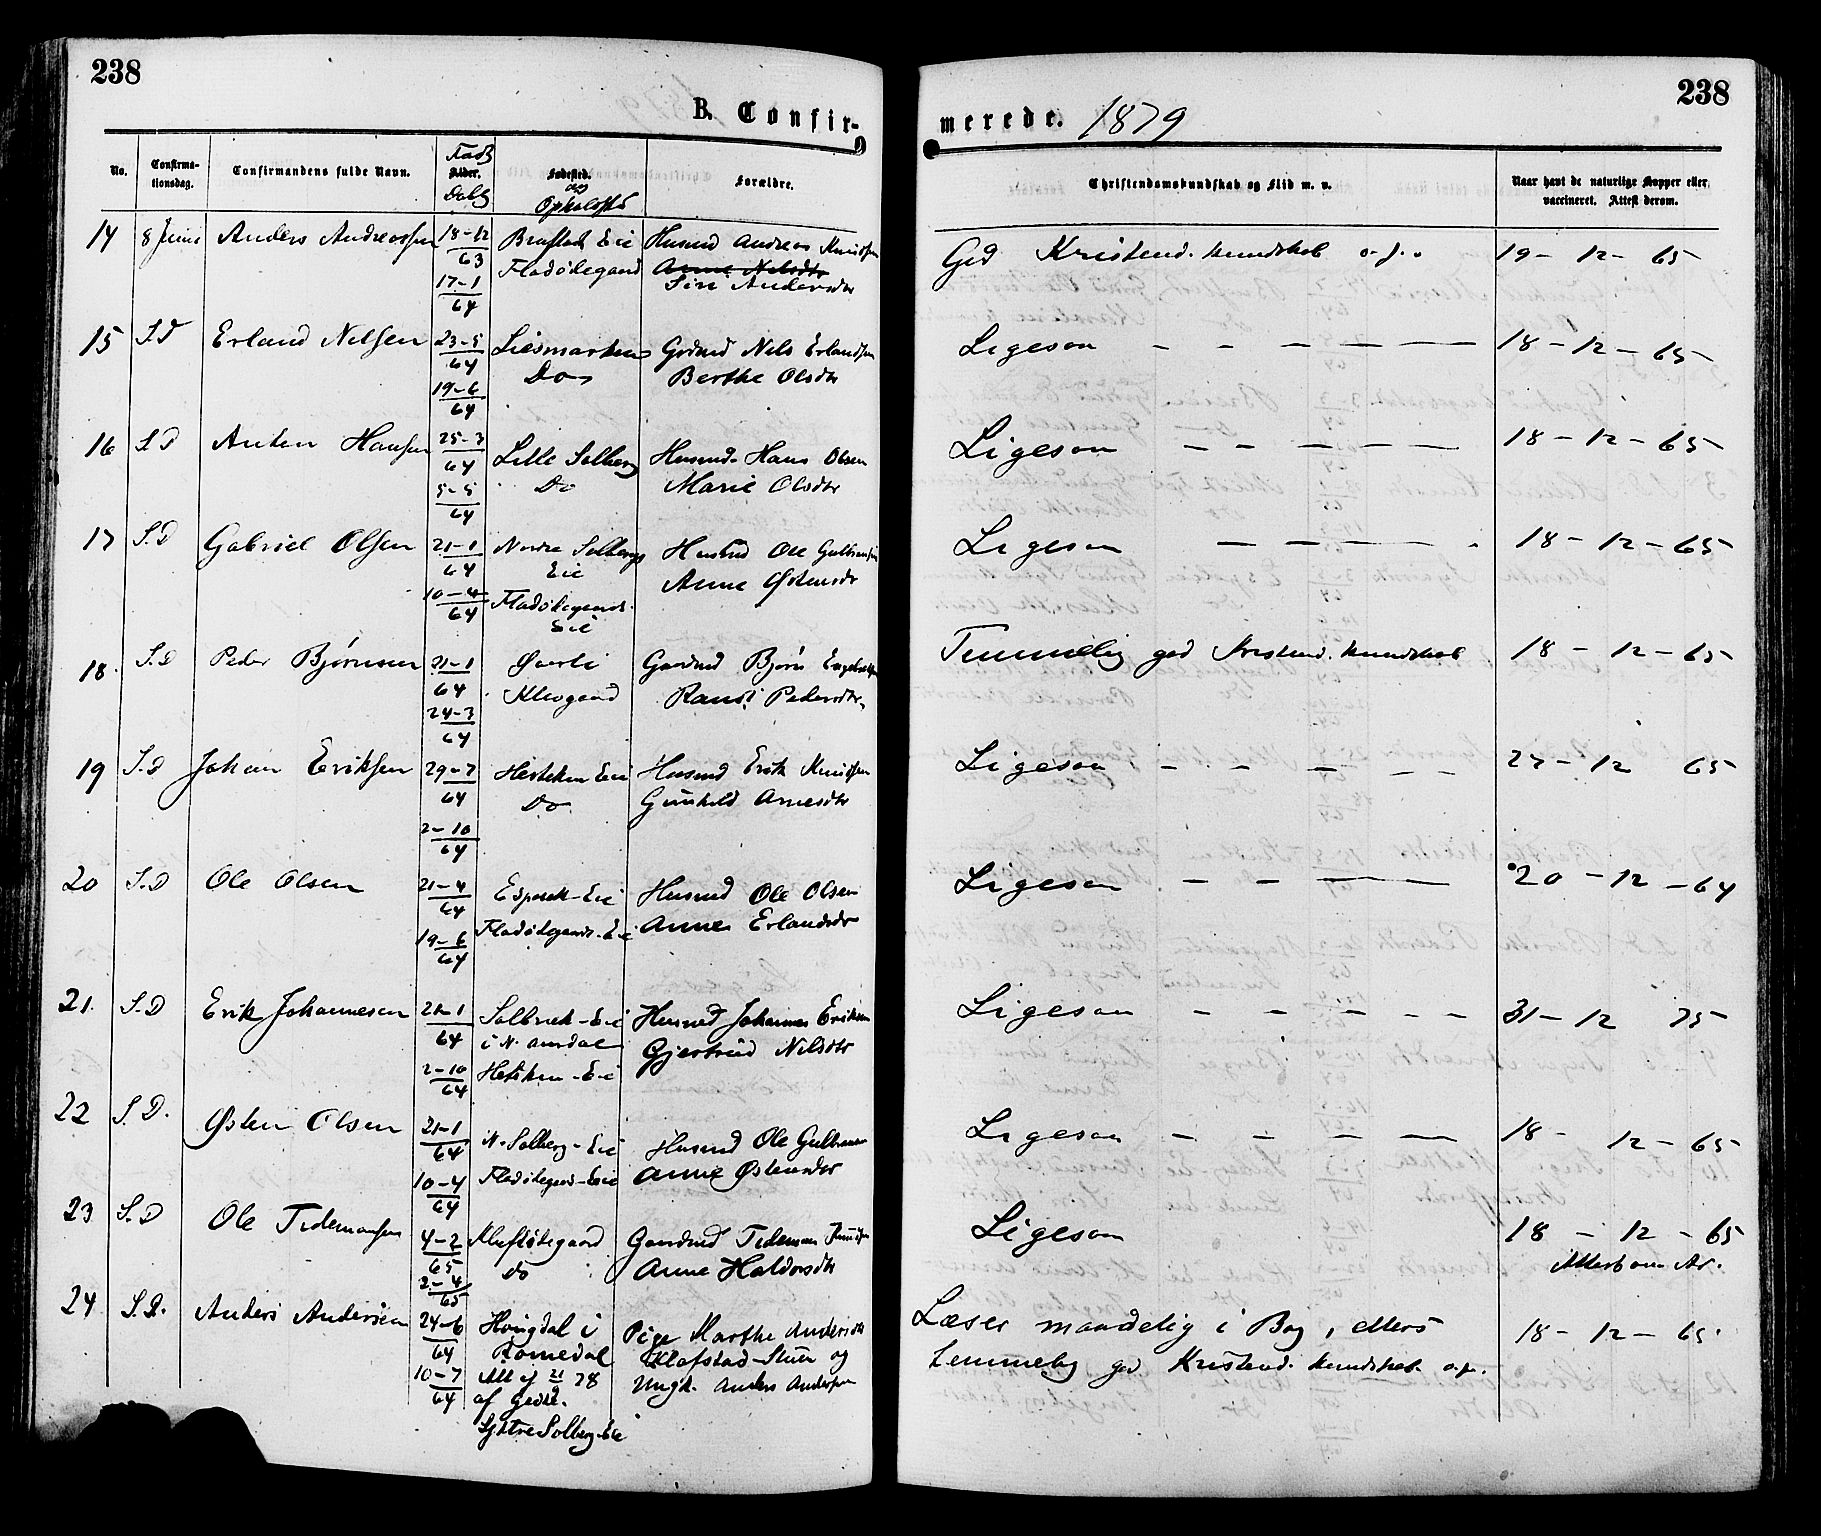 238
B. Confir-
No.
Confirma-
tionsdag.
Confirmandens fulde Navn.
Alder.
Fødested.
og
Opholdssted
Forældre.
14 8 Juni Anders Andreassen 18-12 63 Brustad Eie Husmd Andreas Knudsen
17-1 64 Fladølegaard Anne Nilsdtr
Siri Andersdtr
15 S.D Erland Nilsen 23-5 64 Liesmarken Grdmd Nils Erlandsen
19-6 64 Do Berthe Olsdtr
16 S.D Anton Hansen 25-3 64 Lille Solberg Husmd. Hans Olsen
5-5 64 Do Marie Olsdtr
17 S.D Gabriel Olsen 21-1 64 Nordre Solbergs Eie Husmd Ole Gulbransen
10-4 64 Fladølegaards Eie Anne Østensdtr
18. S.D Peder Bjørnsen 21-1 64 Øverli Gaardmd Bjørn
24-3 64 Klevgaard Randi Pedersdtr.
19 S.D Johan Eriksen 29-7 64 Eie Husmd Erik Knudsen
2-10 64 Do Gunhild Arnesdtr
20 S.D Ole Olsen 21-4 64 Eie Husmd Ole Olsen
19-6 64 Fladølegaards-Eie Anne Erlandsdtr
21. S.D Erik Johannesen 21-1 64 Solbræk-Eie Husmd Johannes Eriksen
i N. Aurdal Gjertrud Nilsdtr
2-10 64 Eie
22 S.D. Østen Olsen 21-1 64 N. Solberg-Eie Husmd Ole Gulbransen
10-4 64 Fladølegaard-Eie Anne Østensdtr
23 S.D Ole Tidemansen 4-2 65 Gaardmd Tideman Knudsen
2-4 65 Do Anne Haldorsdtr
24 S.D. Anders Andersen 24-6 64 i Pige Marthe Andersdtr
Romedal Klafstad og
10-7 64 Att af 21 78 Ungk. Anders Andersen
af
Søttre Solberg-Eie
238
merede. 1879
Christendomskundskab og Flid m. v.
Naar havt de naturlige Kopper eller
vaccineret. Attest derom.
God Kristend. kundskab o.s.v. 19 - 12 - 65
Ligesaa — — — — — 18 - 12 - 65
Ligesaa — — — — — 18 - 12 - 65
Ligesaa — — — — 18 - 12 - 65
Temmelig god Kristend. kundskab 18 - 12 - 65
Ligesaa — — — — — 27 - 12 65
Ligesaa — — — — 20 - 12 - 64
Ligesaa — — — — — 31 - 12 75
Ligesaa — — — — 18 - 12 - 65
Ligesaa 18 - 12 - 65
Læser maadelig i Bog, ellers 18 - 12 - 65
temmelig god Kristend. kundskab. o.s.v.